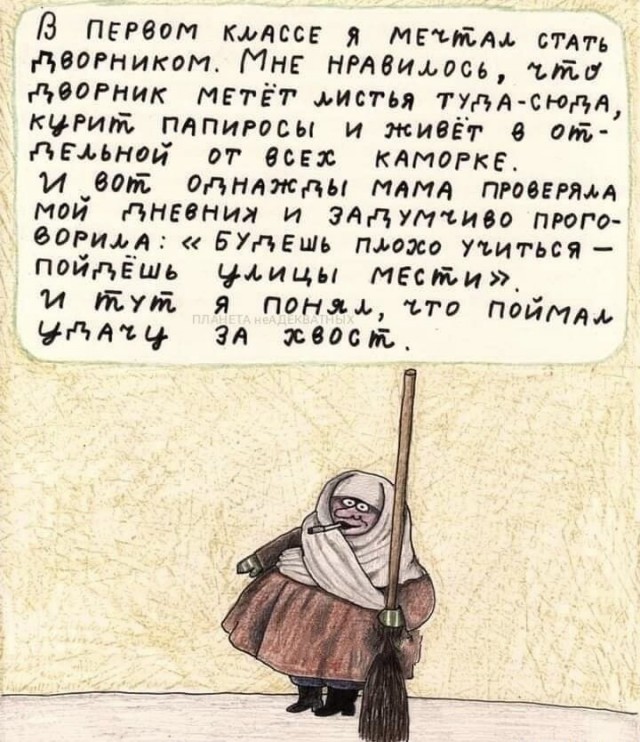 В ПЕРВОМ КЛАССЕ Я МЕЧТАЛ СТАТЬ
ДВОРНИКОМ. МНЕ НРАВИЛОСЬ, ЧТО
ДВОРНИК МЕТЁТ ЛИСТЬЯ ТУДА-СЮДА,
КУРИТ ПАПИРОСЫ И ЖИВЁТ В ОТ-
ДЕЛЬНОЙ ОТ ВСЕХ КАМОРКЕ.
И ВОТ ОДНАЖДЫ МАМА ПРОВЕРЯЛА
МОЙ ДНЕВНИК И ЗАДУМЧИВО ПРОГО-
ВОРИЛА: « БУДЕШЬ ПЛОХО УЧИТЬСЯ –
ПОЙДЁШЬ УЛИЦЫ МЕСТИ».
И ТУТ Я ПОНЯЛ, ЧТО ПОЙМАЛ
ПЛАНЕТА неАДЕКВАТНЫХ
УДАЧУ ЗА ХВОСТ.